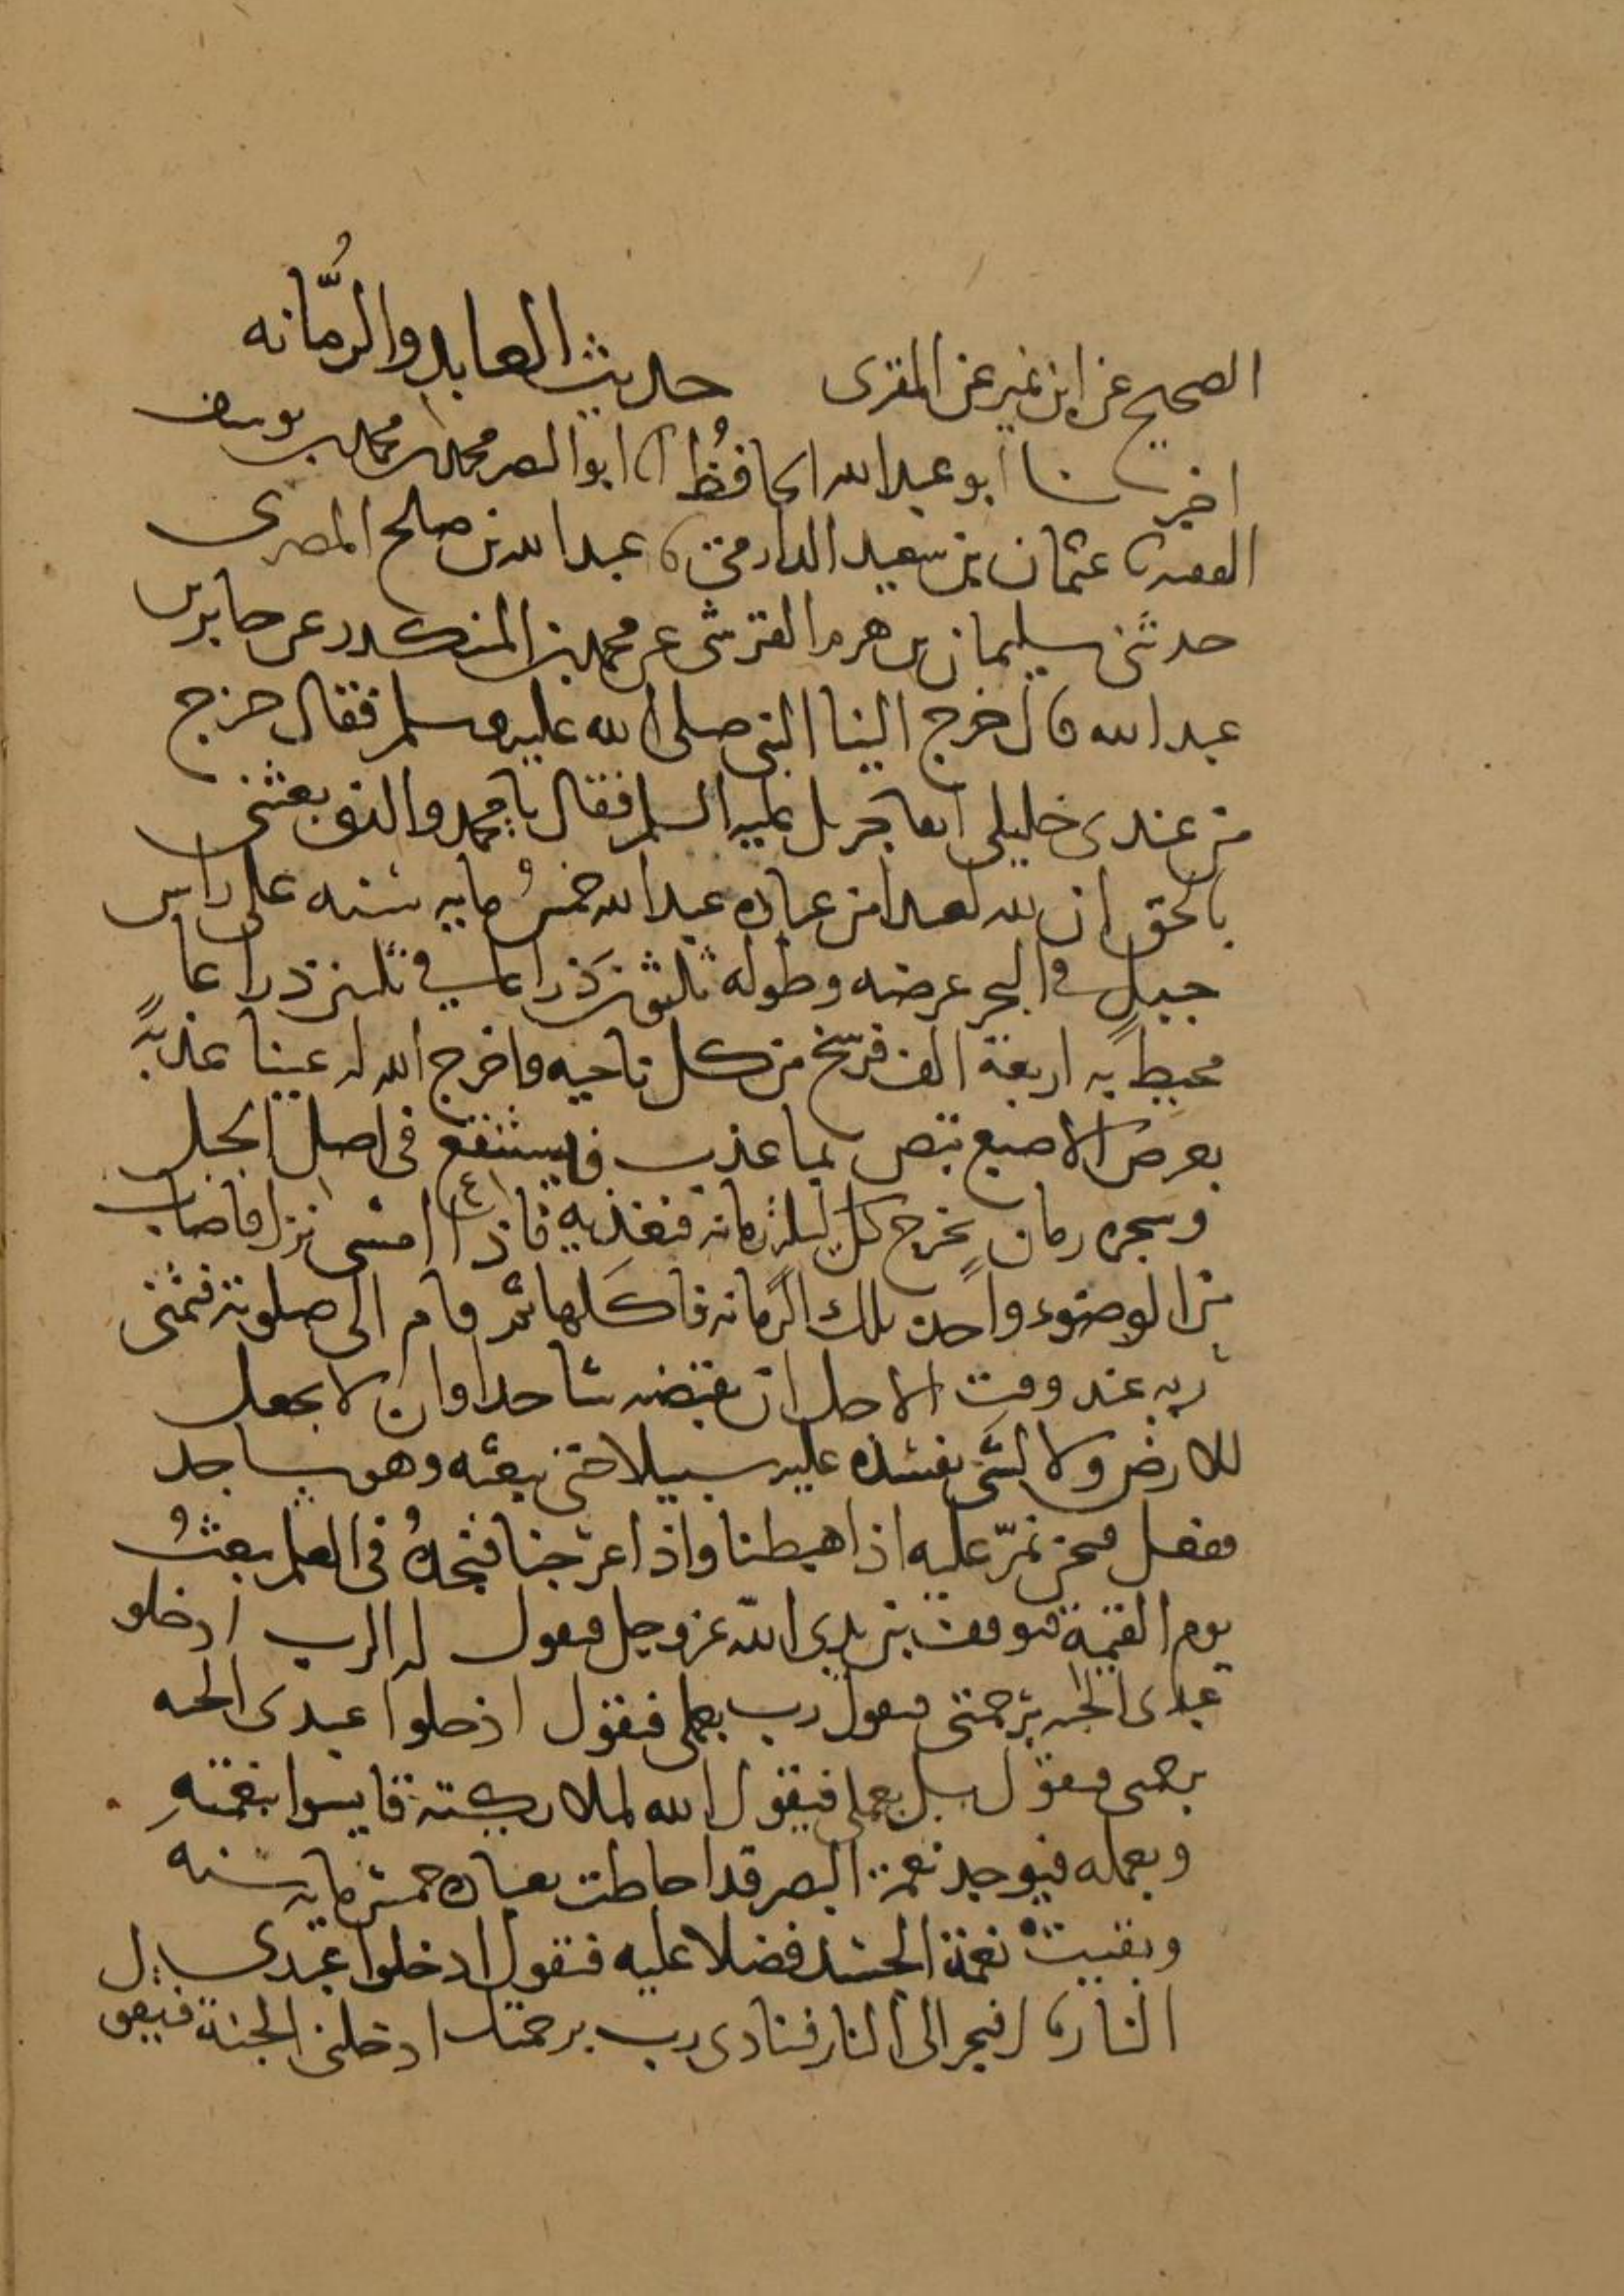 الصحيح عن ابن نمير عن المقرى حديث العابد والرُّمانه
اخبرنا ابو عبدالله الحافظُ انا ابوالنصر محمدبن محمدبن يوسف
الفقيه نا عثمان بن سعيد الدارمى نا عبدالله بن صلح المصرى
حدثنى سليمان بن هرم القرشى عن محمدبن المنكدر عن جابربن
عبدالله قال خرج الينا النبى صلى الله عليه وسلم فقال خرج
من عندى خليلى انفا جبريل عليه السلم فقال يا محمد والذى بعثنى
بالحق ان لله لعبدا من عباده عبدالله خمسُ مايه سنه على راس
جبل فى البحر عرضه وطوله ثلثون ذراعا فى ثلثين ذراعا
محيط به اربعة الف فرسخ من كل ناحيه واخرج الله له عينا عذبةً
بعرض الاصبع تبض بما عذب فيستنقع فى اصل الجبل
وشجره رمان يخرج كل ليلة رمانه فتغذيه فاذا امسى نزل فاصاب
من الوضوء واخذ تلك الرمانه فاكلها ثم قام الى صلوته فتمنى
ربه عند وقت الاجل ان يقبضه ساجدا وان لا يجعل
للارض ولا لشى يفسده عليه سبيلا حتى يبعثه وهو ساجد
ففعل فنحن نمرّ عليه اذا هبطنا واذا عرجنا فنجدهُ فى العلم يبعثُ
يوم القيمة فيوقف بين يدى الله عزوجل فيقول له الرب ادخلو
عبدى الجنه برحمتى فيقول رب بعملى فيقول ادخلوا عبدى الجنه
برحمتى فيقول بل بعملى فيقول الله لملايكته قايسوا بنعمتهِ
وبعمله فيوجد نعمة البصر قد احاطت بعباده خمس مايه سنه
وبقيت نعمة الجسد فضلا عليه فيقول ادخلوا عبدى
النار قال فيجر الى النار فينادى رب برحمتك ادخلنى الجنة فيقول